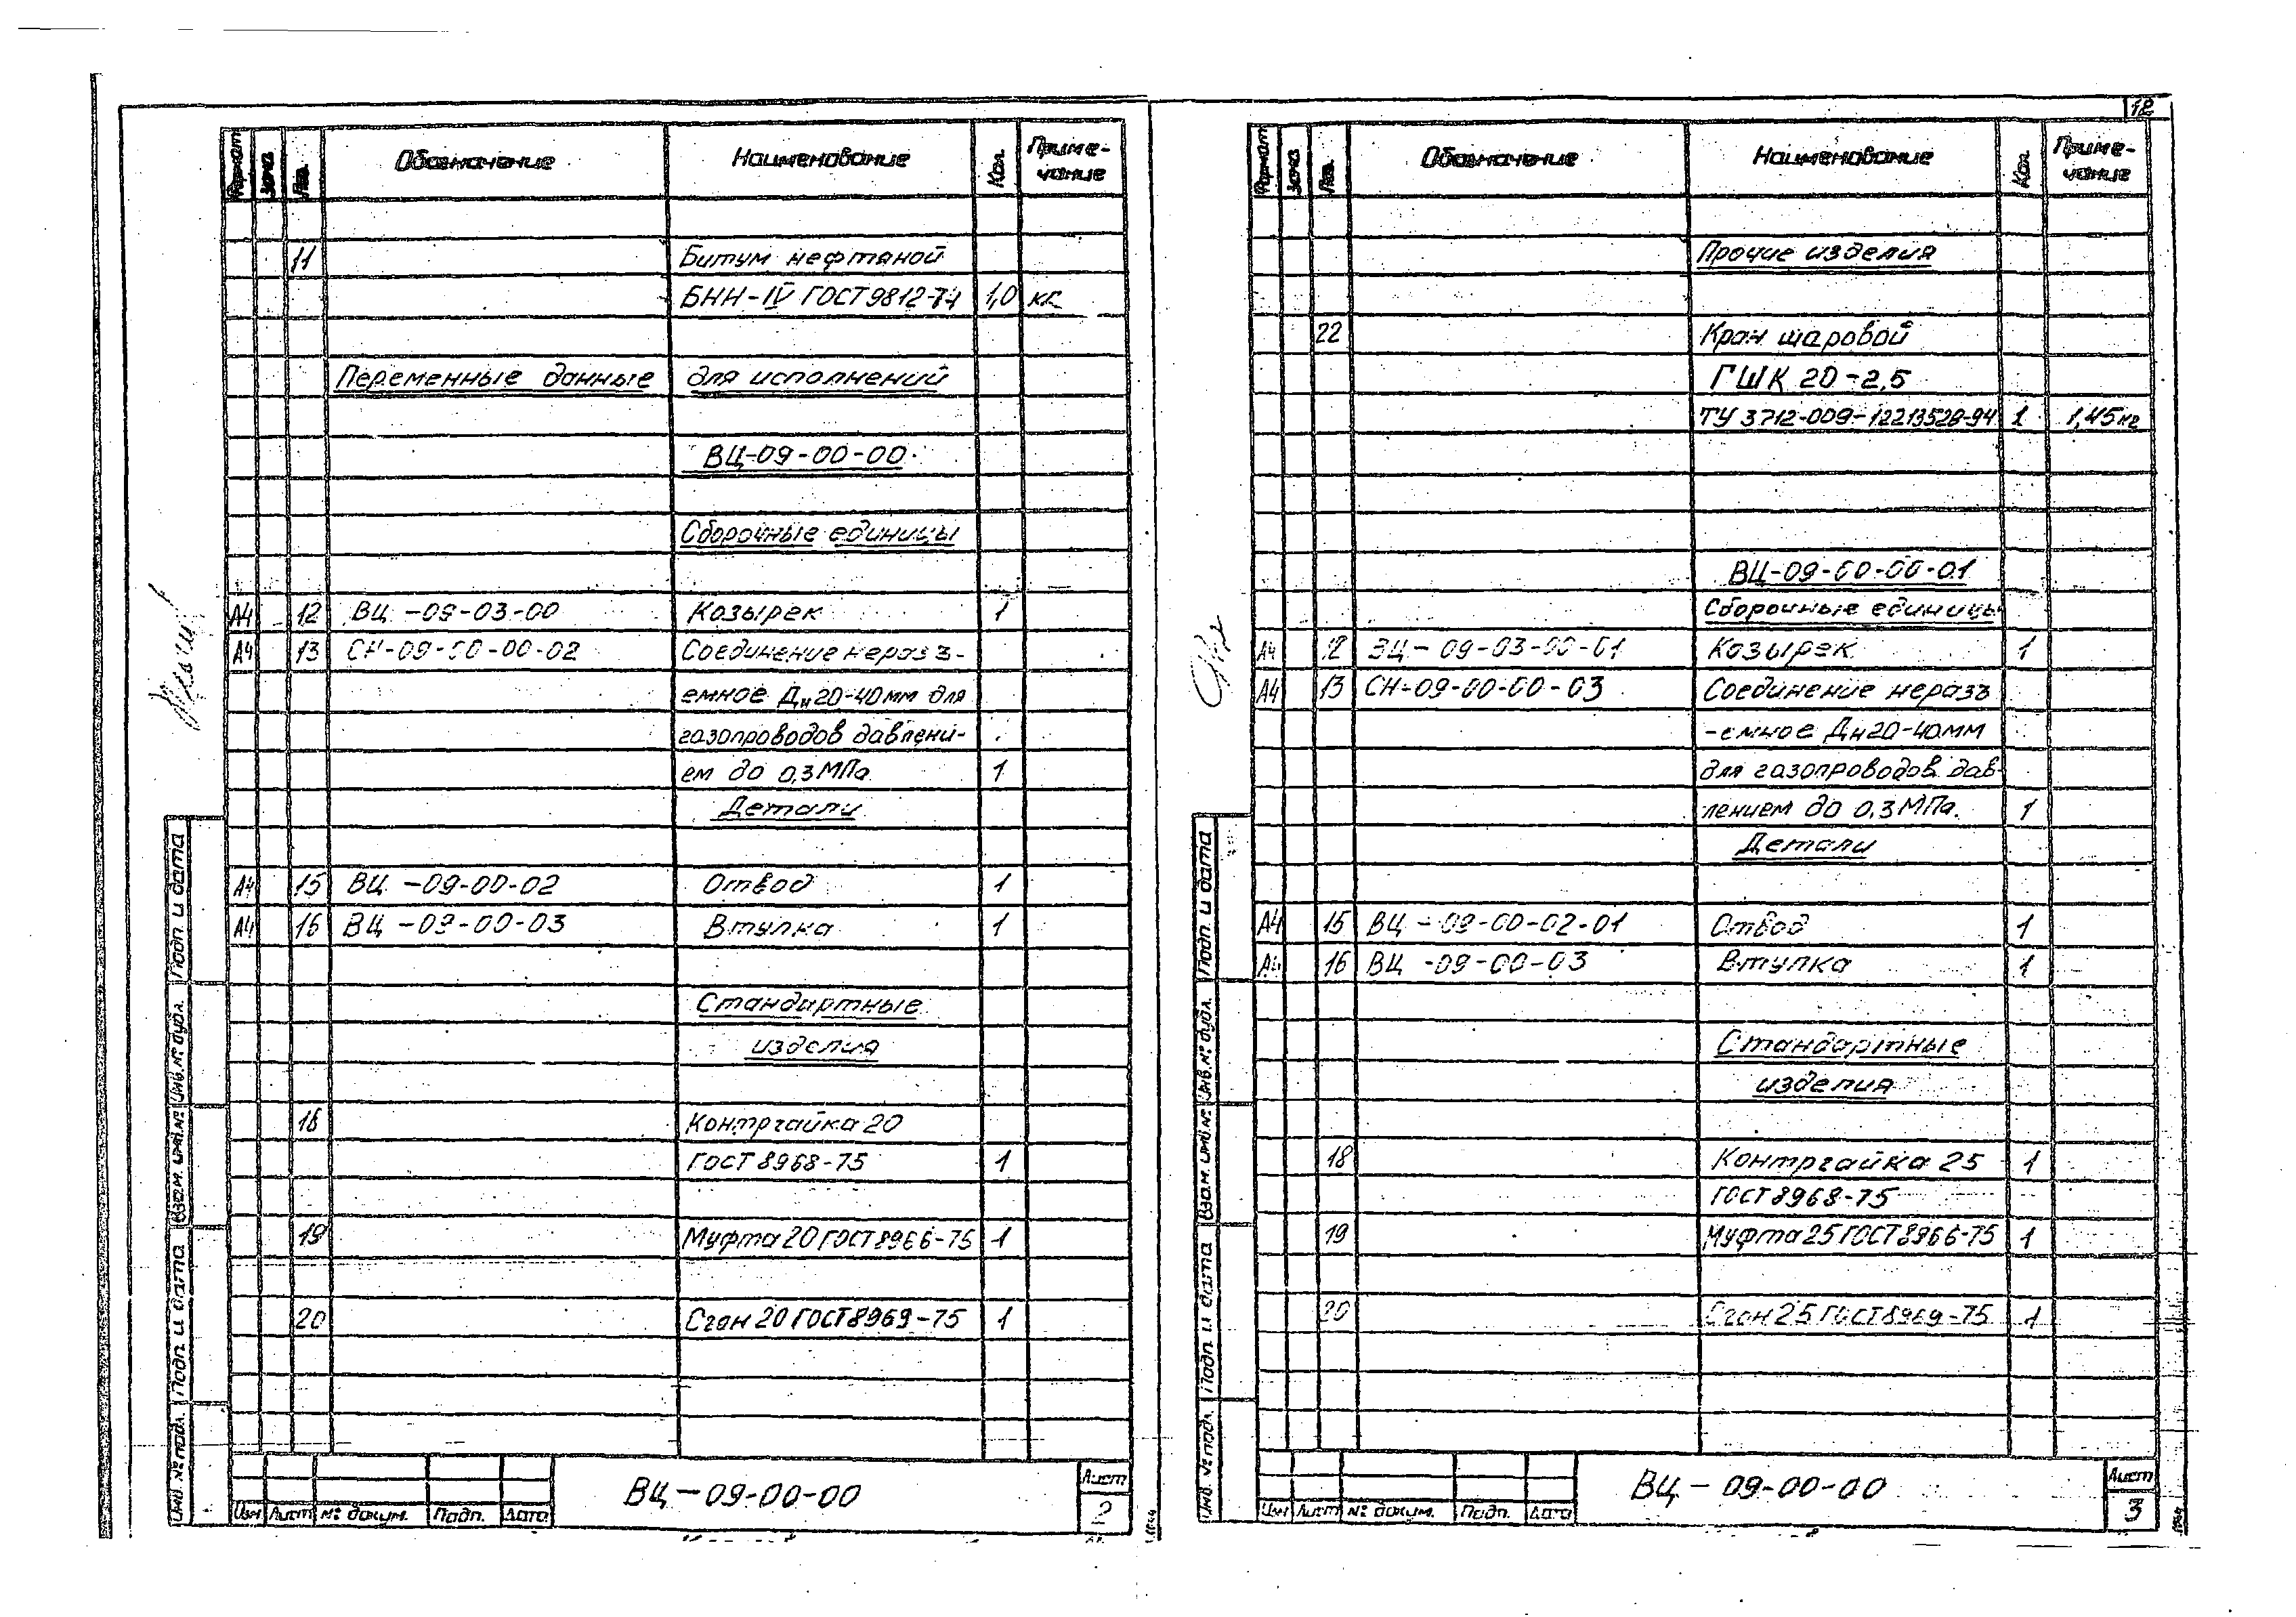 Формат Зона Поз. Обозначение Наименование Кол. Приме-
чание
11 Битум нефтяной
БНН-IV ГОСТ 9812-74 1,0 кг
Переменные данные для исполнений
ВЦ-09-00-00
Сборочные единицы
А4 12 ВЦ -09-03-00 Козырек 1
А4 13 СН-09-00-00-02 Соединение неразъ-
емное Дн 20-40 мм для
газопроводов давлени-
ем до 0,3 МПа 1
Детали
А4 15 ВЦ -09-00-02 Отвод 1
А4 16 ВЦ -09-00-03 Втулка 1
Стандартные
изделия
18 Контргайка 20
ГОСТ 8968-75 1
19 Муфта 20 ГОСТ 8966-75 1
20 Сгон 20 ГОСТ 8969-75 1
Инв. № подл. Подп. и дата Взам. инв. № Инв. № дубл. Подп. и дата
Изм Лист № докум. Подп. Дата
ВЦ-09-00-00
Лист
2
12
Формат Зона Поз. Обозначение Наименование Кол. Приме-
чание
Прочие изделия
22 Кран шаровой
ГШК 20-2,5
ТУ 3712-009-12213528-94 1 1,45 кг
ВЦ-09-00-00-01
Сборочные единицы
А4 12 ВЦ-09-03-00-01 Козырек 1
А4 13 СН-09-00-00-03 Соединение неразъ
-емное Дн 20-40мм
для газопроводов дав-
лением до 0,3 МПа. 1
Детали
А4 15 ВЦ -09-00-02-01 Отвод 1
А4 16 ВЦ -09-00-03 Втулка 1
Стандартные
изделия
18 Контргайка 25 1
ГОСТ 8968-75
19 Муфта 25 ГОСТ 8966-75 1
20 Сгон 25 ГОСТ 8969-75 1
Инв. № подл. Подп. и дата Взам. инв. № Инв. № дубл. Подп. и дата
Изм Лист № докум. Подп. Дата
ВЦ-09-00-00
Лист
3